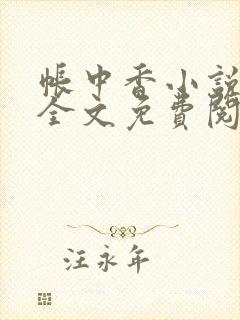 帐中香小説
全文免費閱
汪永年